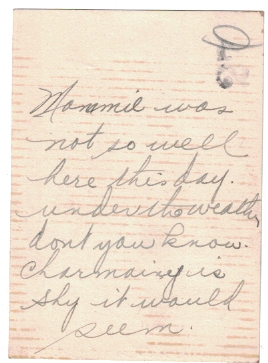 Mommie was
not so well
here this day.
under the weather
dont you know.
Charmaine is
shy it would
seem.